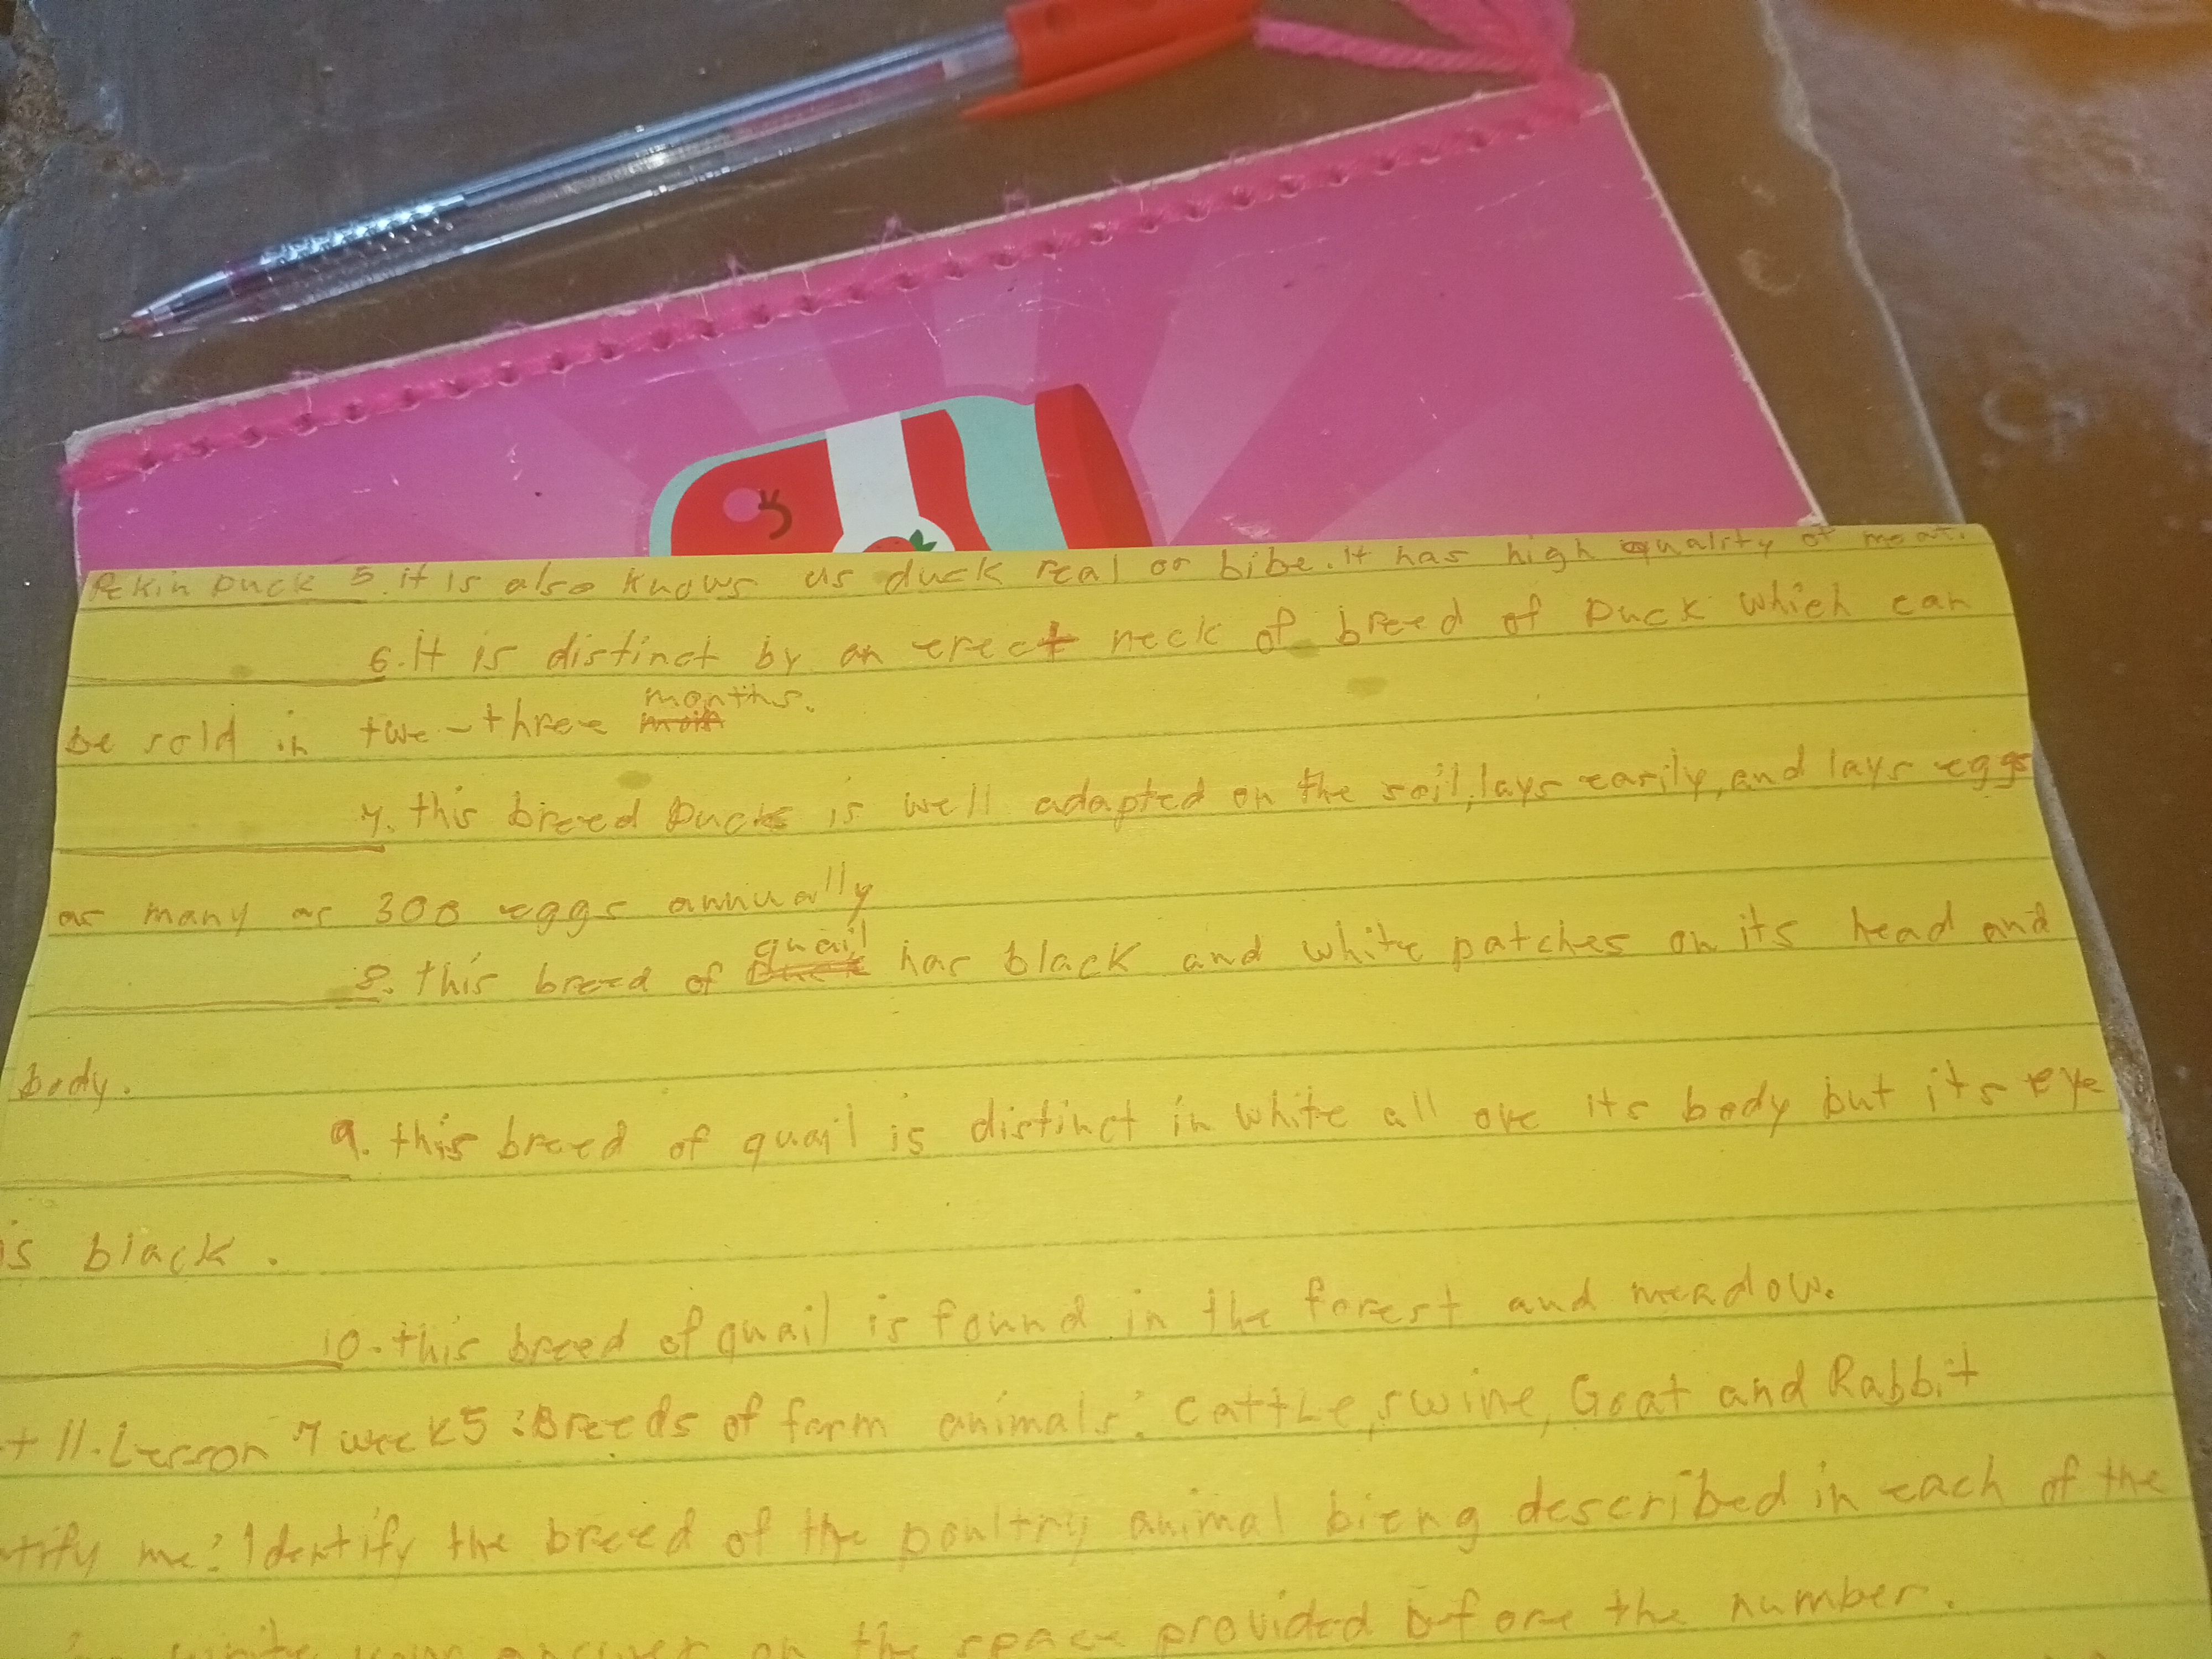 Pekin Duck 5. it is also knows as duck real or bibe. It has high quality of meat.
6. It is distinct by an erect neck of breed of Duck which can
be sold in twe-three months.
7. this breed Duck is well adapted on the soil, lays earily, and lays eggs
as many as 300 eggs annually
8. this breed of quail has black and white patches on its head and
body.
9. this breed of quail is distinct in white all ove its body but its eye
is black.
10. this breed of quail is found in the forest and meadow.
t 11. Lesson 7 week 5: Breeds of farm animals: Cattle, swine, Goat and Rabbit
ntify me: Identify the breed of the poultry animal bieng described in each of the
write your answer on the space provided before the number.